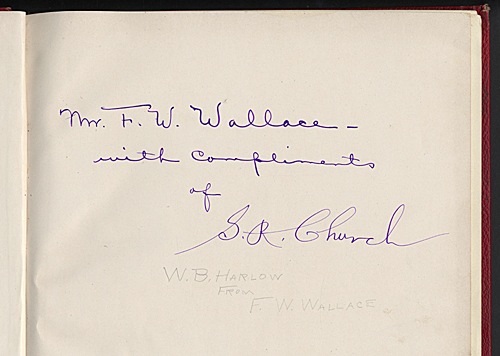 Mr. F. W. Wallace –
with compliments
of
S. R. Church
W. B. HARLOW
FROM
F. W. WALLACE.